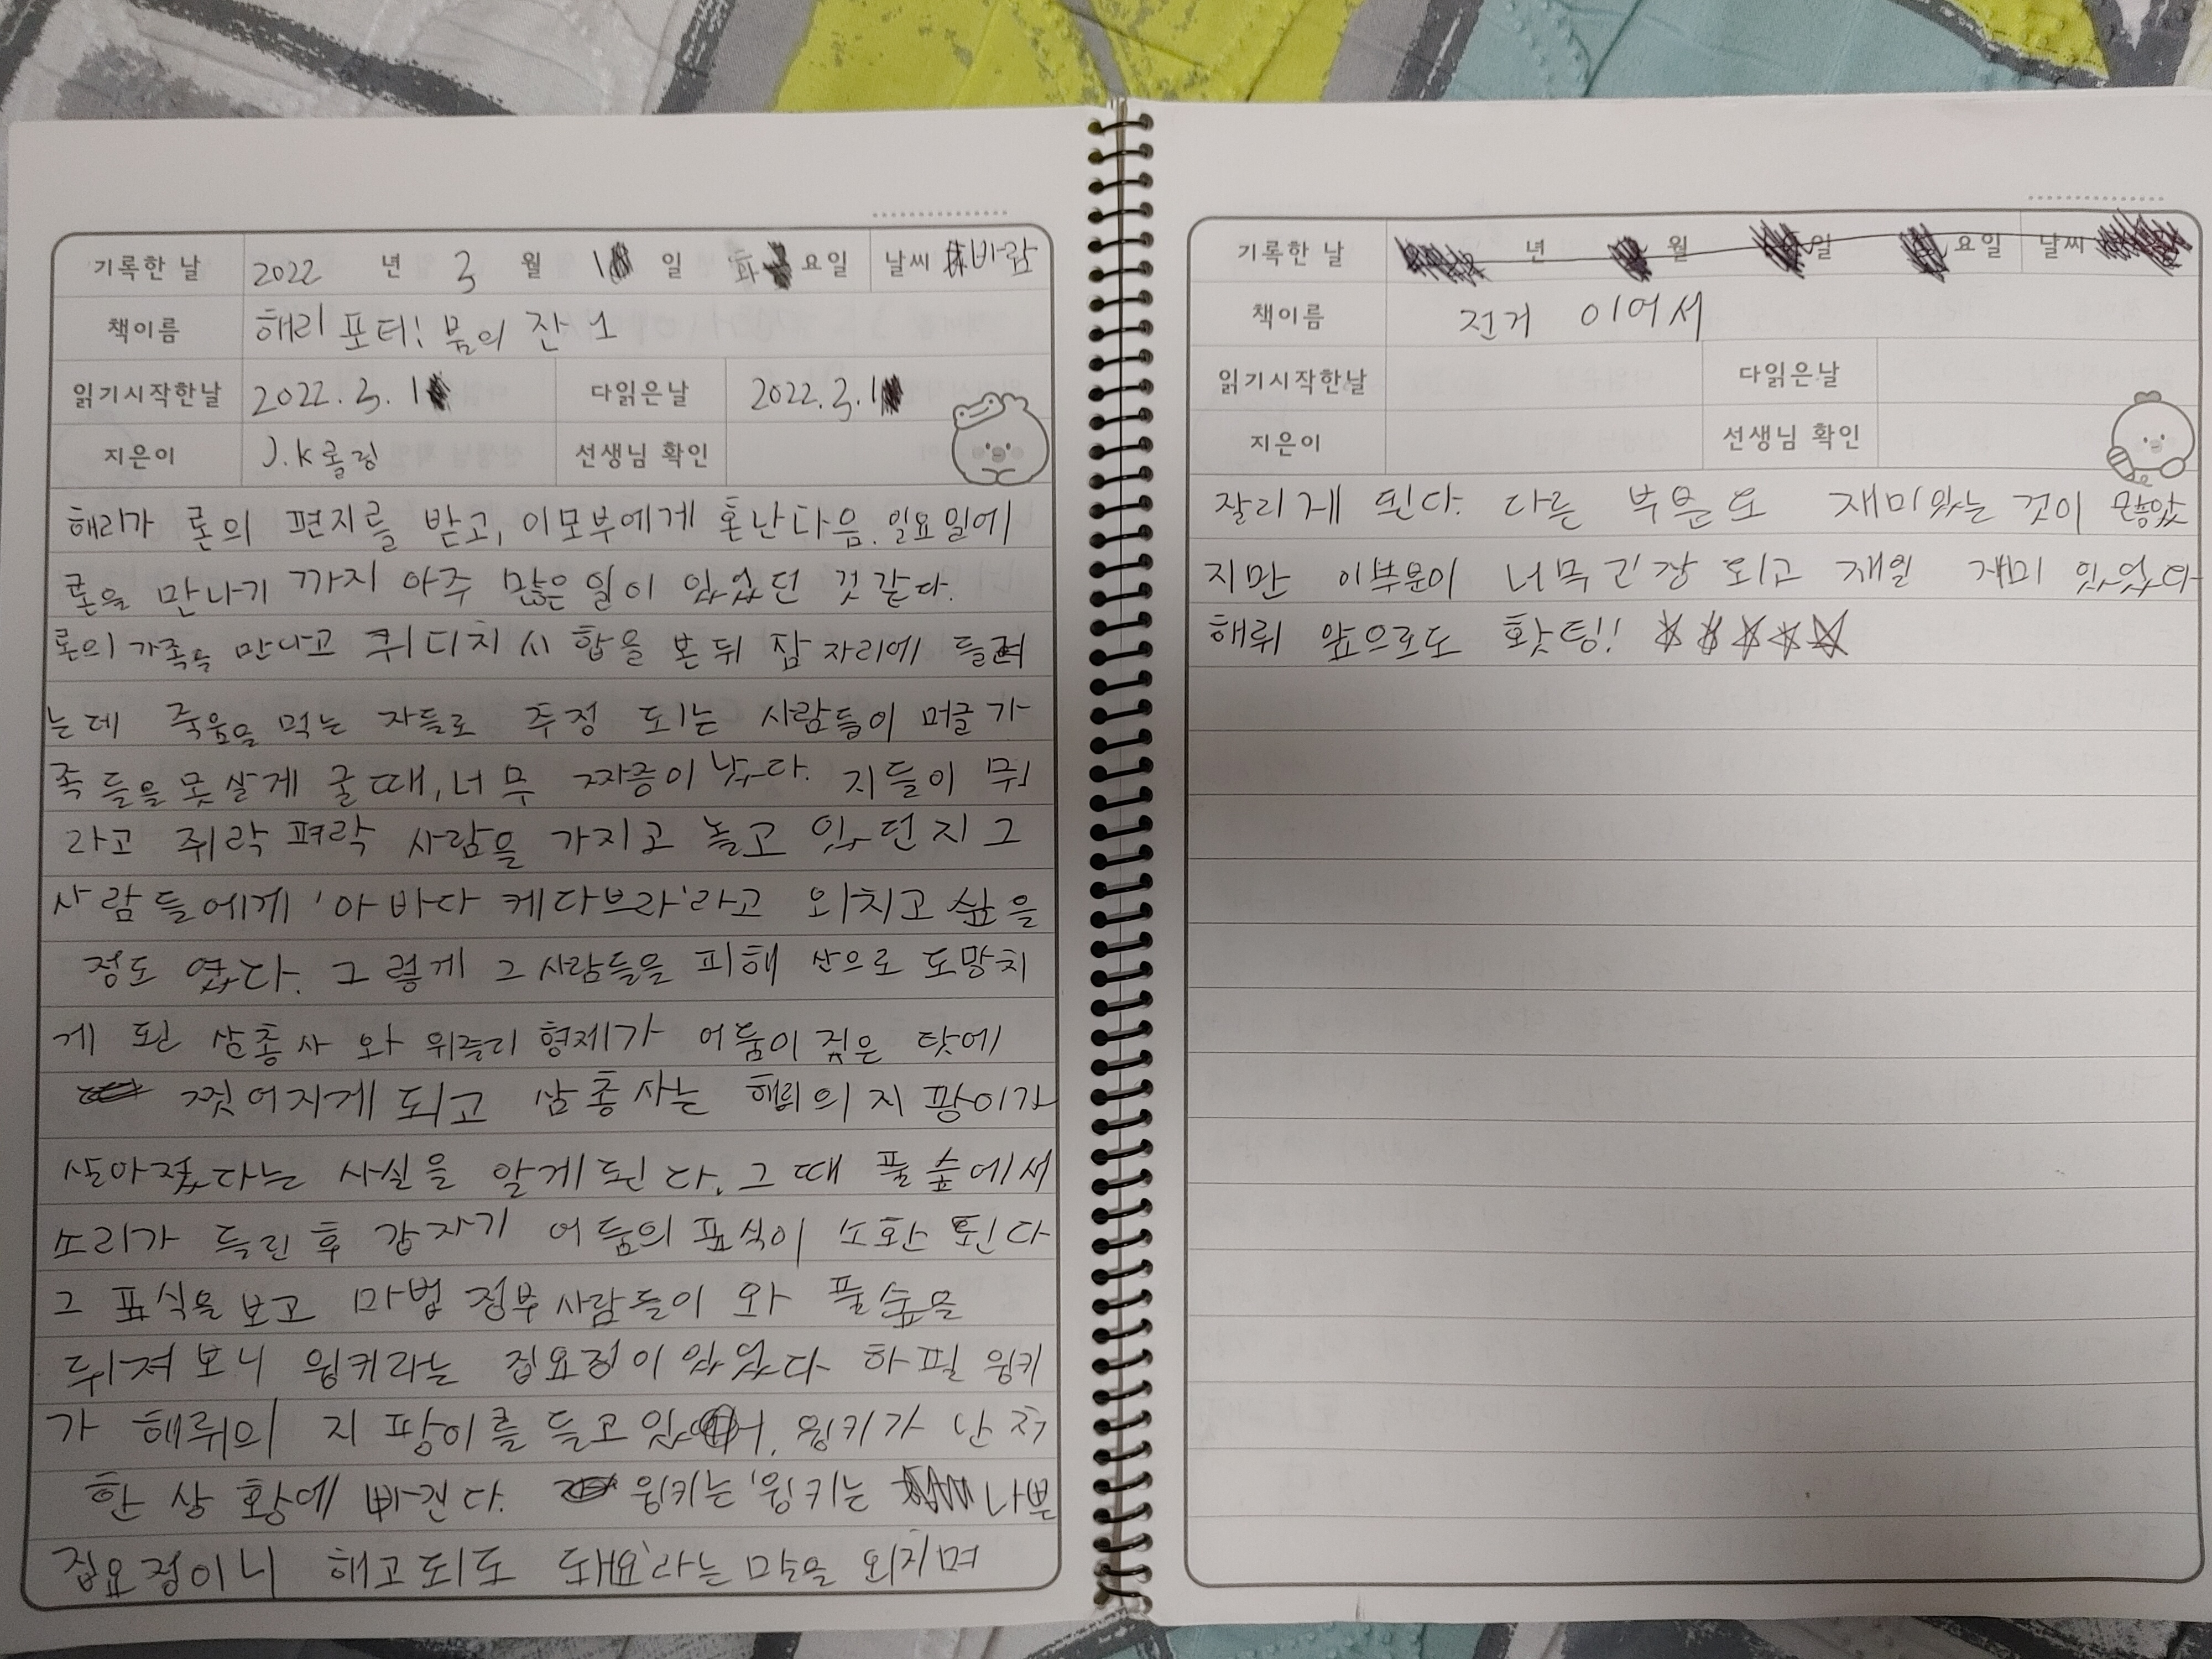 기록한 날 2022 년 3 월 1 일 화 요일 날씨 바람
책이름 해리 포터! 불의 잔 1
읽기시작한날 2022. 3. 1 다읽은날 2022. 3. 1
지은이 J.K롤링 선생님 확인
해리가 론의 편지를 받고, 이모부에게 혼난다음, 일요일에
론을 만나기 까지 아주 많은 일이 있었던 것 같다.
론의 가족을 만나고 퀴디치 시합을 본뒤 잠자리에
는데 죽음을 먹는 자들로 추정 되는 사람들이 머글 가
족 들을 못살게 굴때, 너무 짜증이 났다. 지들이 뭐
라고 쥐락 펴락 사람을 가지고 놀고 있던지 그
사람들에게 '아바다 케다브라'라고 외치고 싶을
정도 였다. 그렇게 그 사람들을 피해 산으로 도망치
게 된 삼총사 와 위즐리 형제가 어둠이 짙은 탓에
찢어지게 되고 삼총사는 해뤼의 지팡이가
살아졌다는 사실을 알게 된다. 그때 풀숲에서
소리가 들린 후 갑자기 어둠의 표식이 소환 된다
그 표식을 보고 마법 정부 사람들이 와 풀숲을
뒤져보니 윙키라는 집요정이 있었다 하필 윙키
가 해뤼의 지팡이를 들고있어, 윙키가 난처
한 상황에 빠진다. 윙키는 '윙키는 나쁜
집요정이니 해고되도 돼요'라는 말을 외치며
기록한 날 년 월 일 요일 날씨
책이름 전거 이어서
읽기시작한날 다읽은날
지은이 선생님 확인
잘리게 된다. 다른 부분도 재미있는 것이 많았
지만 이부분이 너무 긴장 되고 재일 재미 있었다
해뤼 앞으로도 홧팅!